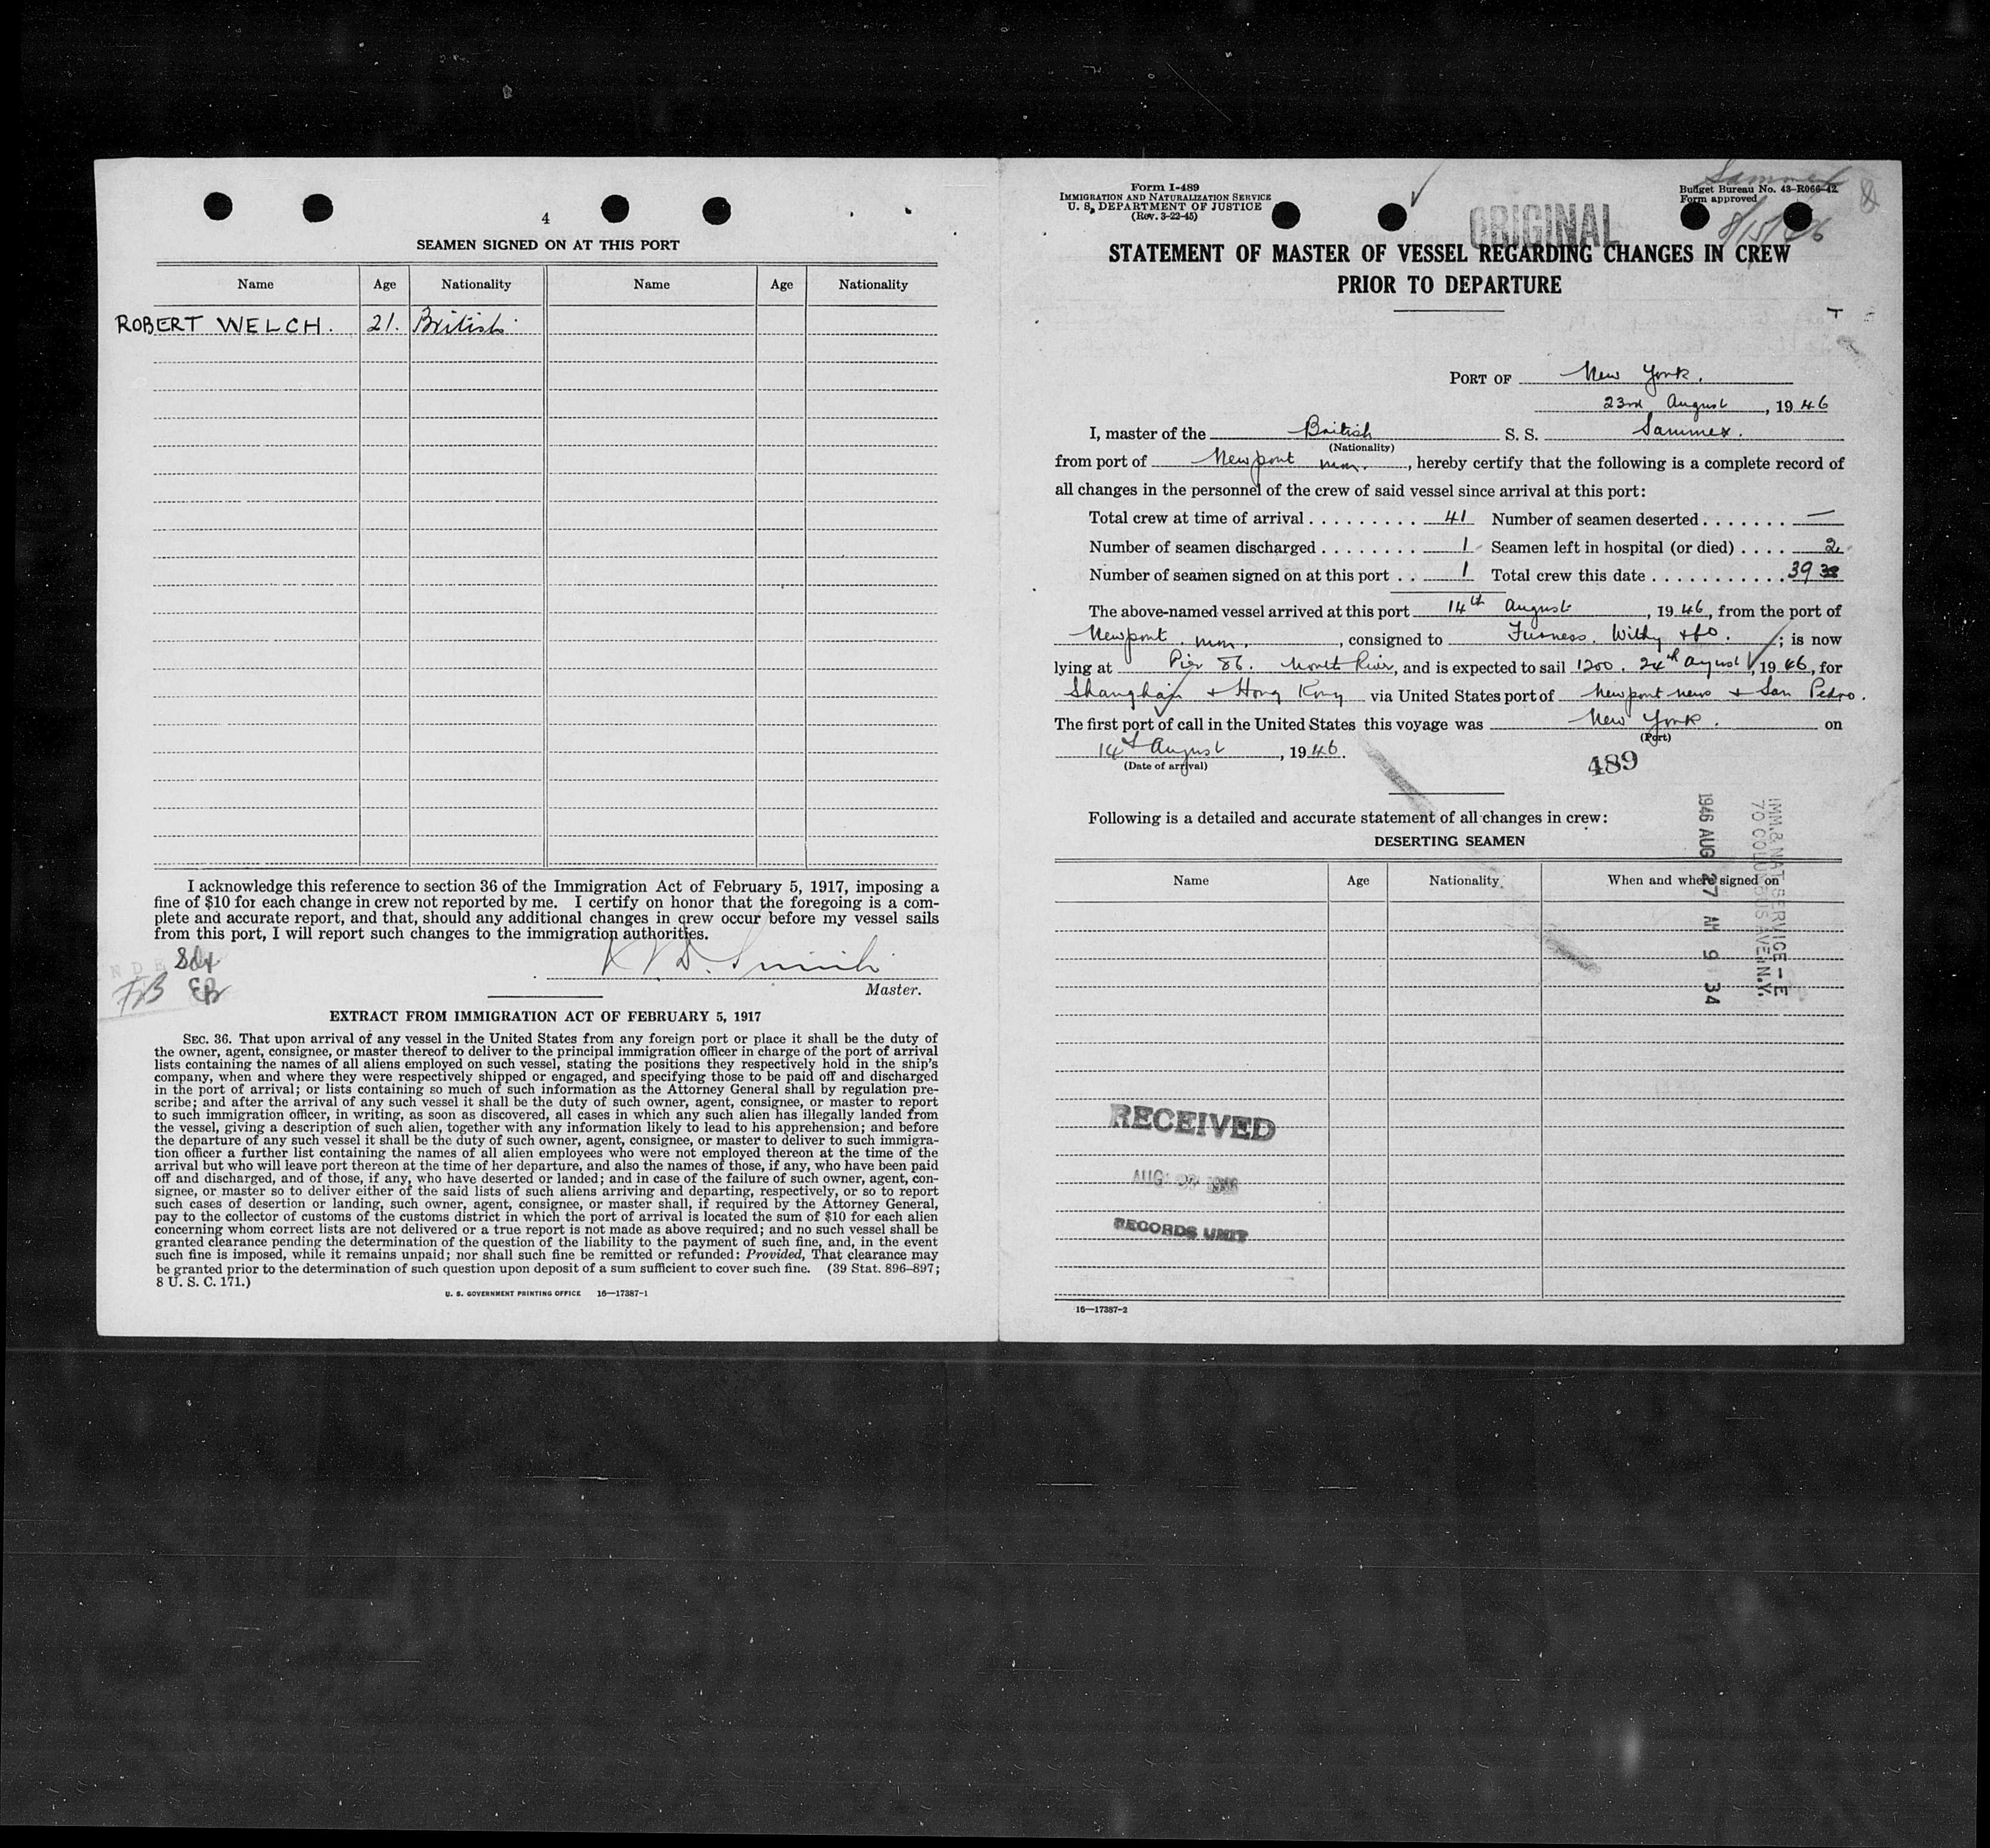 4
SEAMEN SIGNED ON AT THIS PORT
Name Age Nationality Name Age Nationality
ROBERT WELCH. 21. British
I acknowledge this reference to section 36 of the Immigration Act of February 5, 1917, imposing a
fine of $10 for each change in crew not reported by me. I certify on honor that the foregoing is a com-
plete and accurate report, and that, should any additional changes in crew occur before my vessel sails
from this port, I will report such changes to the immigration authorities.
Smith
Master.
EXTRACT FROM IMMIGRATION ACT OF FEBRUARY 5, 1917
SEC. 36. That upon arrival of any vessel in the United States from any foreign port or place it shall be the duty of
the owner, agent, consignee, or master thereof to deliver to the principal immigration officer in charge of the port of arrival
lists containing the names of all aliens employed on such vessel, stating the positions they respectively hold in the ship's
company, when and where they were respectively shipped or engaged, and specifying those to be paid off and discharged
in the port of arrival; or lists containing so much of such information as the Attorney General shall by regulation pre-
scribe; and after the arrival of any such vessel it shall be the duty of such owner, agent, consignee, or master to report
to such immigration officer, in writing, as soon as discovered, all cases in which any such alien has illegally landed from
the vessel, giving a description of such alien, together with any information likely to lead to his apprehension; and before
the departure of any such vessel it shall be the duty of such owner, agent, consignee, or master to deliver to such immigra-
tion officer a further list containing the names of all alien employees who were not employed thereon at the time of the
arrival but who will leave port thereon at the time of her departure, and also the names of those, if any, who have been paid
off and discharged, and of those, if any, who have deserted or landed; and in case of the failure of such owner, agent, con-
signee, or master so to deliver either of the said lists of such aliens arriving and departing, respectively, or so to report
such cases of desertion or landing, such owner, agent, consignee, or master shall, if required by the Attorney General,
pay to the collector of customs of the customs district in which the port of arrival is located the sum of $10 for each alien
concerning whom correct lists are not delivered or a true report is not made as above required; and no such vessel shall be
granted clearance pending the determination of the question of the liability to the payment of such fine, and, in the event
such fine is imposed, while it remains unpaid; nor shall such fine be remitted or refunded: Provided, That clearance may
be granted prior to the determination of such question upon deposit of a sum sufficient to cover such fine. (39 Stat. 896–897;
8 U. S. C. 171.)
U. S. GOVERNMENT PRINTING OFFICE 16—17387-1
Form I-489
IMMIGRATION AND NATURALIZATION SERVICE
U. S. DEPARTMENT OF JUSTICE
(Rev. 3-22-45)
Sammex
Budget Bureau No. 43-R066-42
Form approved
8/15/46
ORIGINAL
STATEMENT OF MASTER OF VESSEL REGARDING CHANGES IN CREW
PRIOR TO DEPARTURE
PORT OF New York.
23rd August, 1946
I, master of the British S. S. Sammex.
(Nationality)
from port of Newport Mon., hereby certify that the following is a complete record of
all changes in the personnel of the crew of said vessel since arrival at this port:
Total crew at time of arrival . . . . . . . . . 41 Number of seamen deserted . . . . . . . —
Number of seamen discharged . . . . . . . . 1 Seamen left in hospital (or died) . . . . 2
Number of seamen signed on at this port . . 1 Total crew this date . . . . . . . . . . . 39
The above-named vessel arrived at this port 14th August, 1946, from the port of
Newport. Mon., consigned to Furness. Withy & Co.; is now
lying at Pier 86. North River, and is expected to sail 1200. 24th August, 1946, for
Shanghai + Hong Kong via United States port of Newport News + San Pedro.
The first port of call in the United States this voyage was New York. on
(Port)
14th August, 1946.
(Date of arrival)
489
Following is a detailed and accurate statement of all changes in crew:
DESERTING SEAMEN
Name Age Nationality When and where signed on
1946 AUG 27 AM 9 34
IMM. & NAT. SERVICE - E
70 COLUMBUS AVE. N.Y.
RECEIVED
AUG 27 1946
RECORDS UNIT
16—17387-2